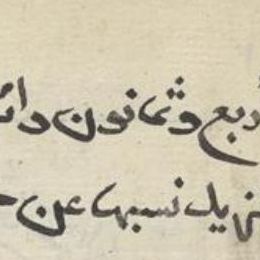 ربع وثمانون دا
يزيد نسبها عن